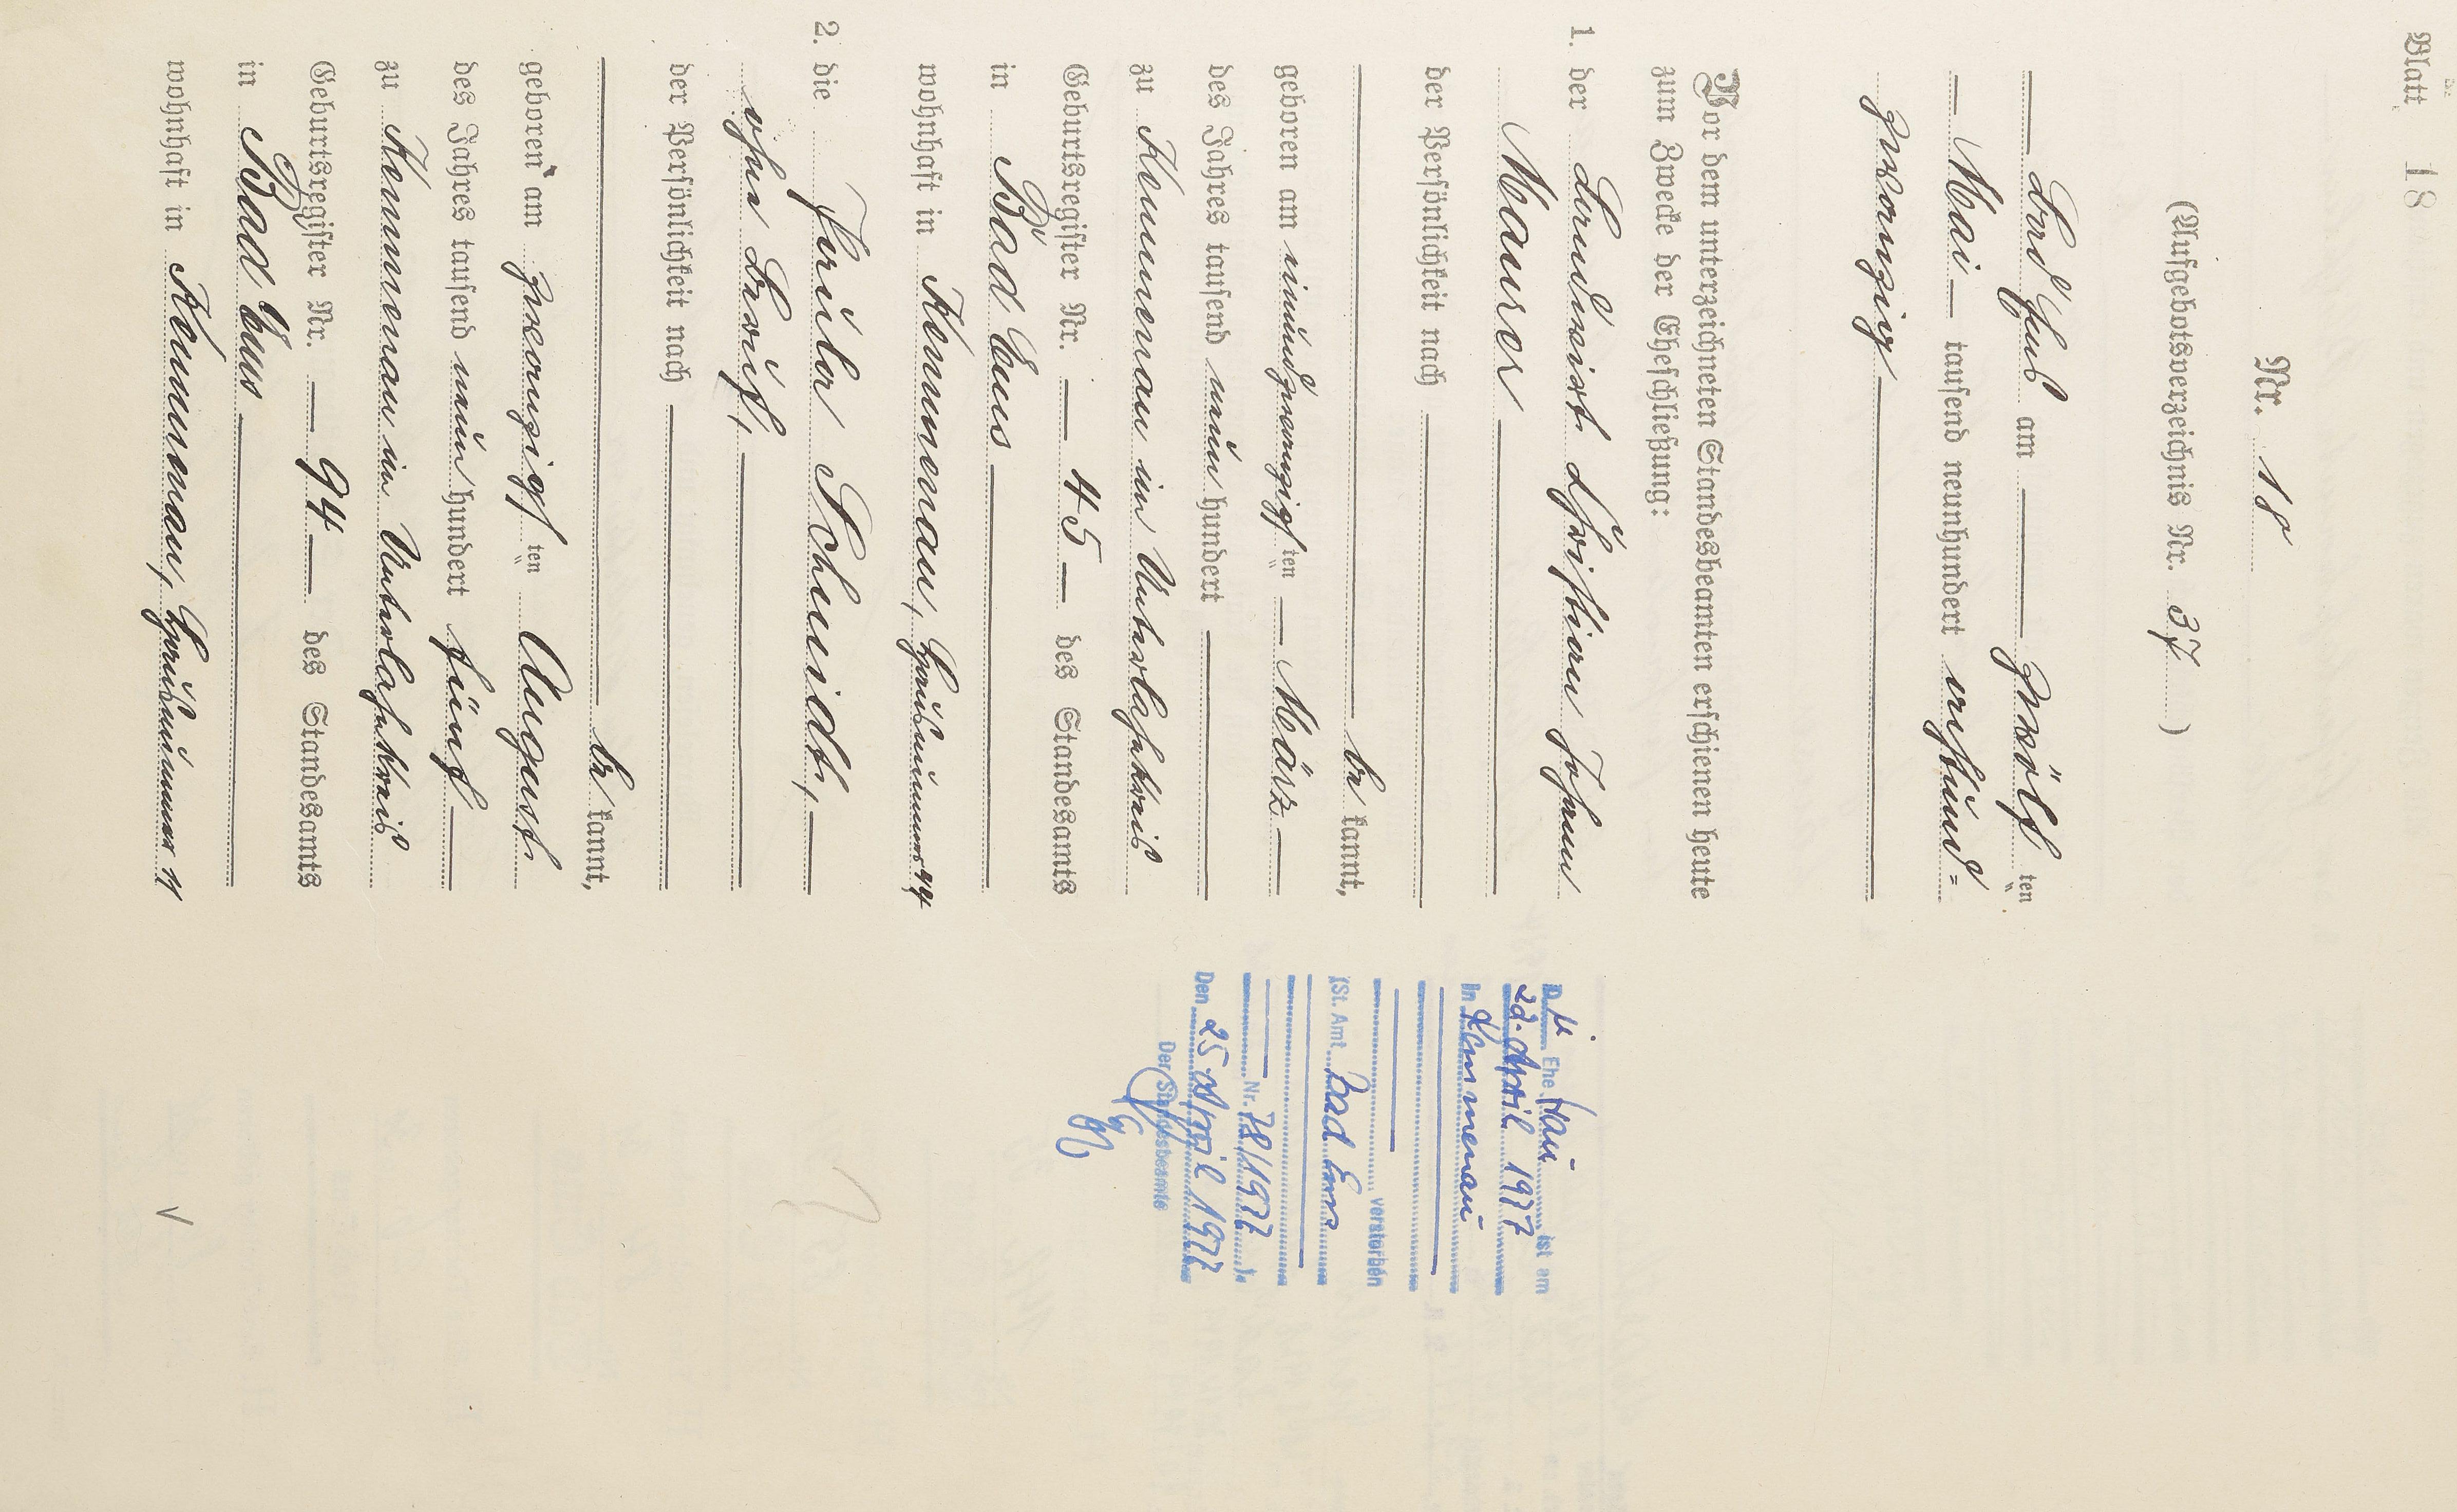 Blatt 18
Nr. 18
(Aufgebotsverzeichnis Nr. 37)
Bad Ems am zwölften
Mai tausend neunhundert achtund=
zwanzig
Vor dem unterzeichneten Standesbeamten erschienen heute
zum Zwecke der Eheschließung:
1. der Landwirt Christian Johann
Maurer
der Persönlichkeit nach
be kannt,
geboren am einundzwanzigsten März
des Jahres tausend neun hundert
zu Kemmenau im Unterlahnkreis
Geburtsregister Nr. 45 des Standesamts
in Bad Ems
wohnhaft in Kemmenau, Hausnummer 44
2. die Schmidt,
ohne Beruf,
der Persönlichkeit nach
be kannt,
geboren am zwanzigsten August
des Jahres tausend neun hundert fünf
zu Kemmenau im Unterlahnkreis
Geburtsregister Nr. 94 des Standesamts
in Bad Ems
wohnhaft in Kemmenau, Hausnummer 11
Die Ehefrau ist am
22. April 1977
in Kemmenau
verstorben
(St. Amt Bad Ems
Nr. 78/1977).
Den 25. April 1977
Der Standesbeamte